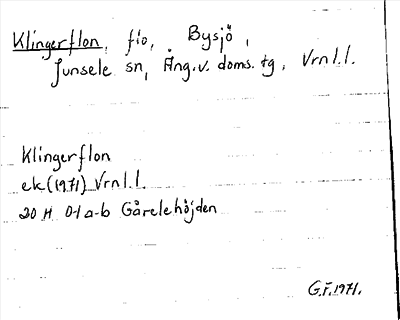 Klingerflon, flo, Bysjö,
Junsele sn, Ång.v. doms. tg. Vrnl.l.
Klingerflon
ek (1971) Vrnl.l.
20 H 0-1 a-b Gårelehöjden
G.F. 1971.